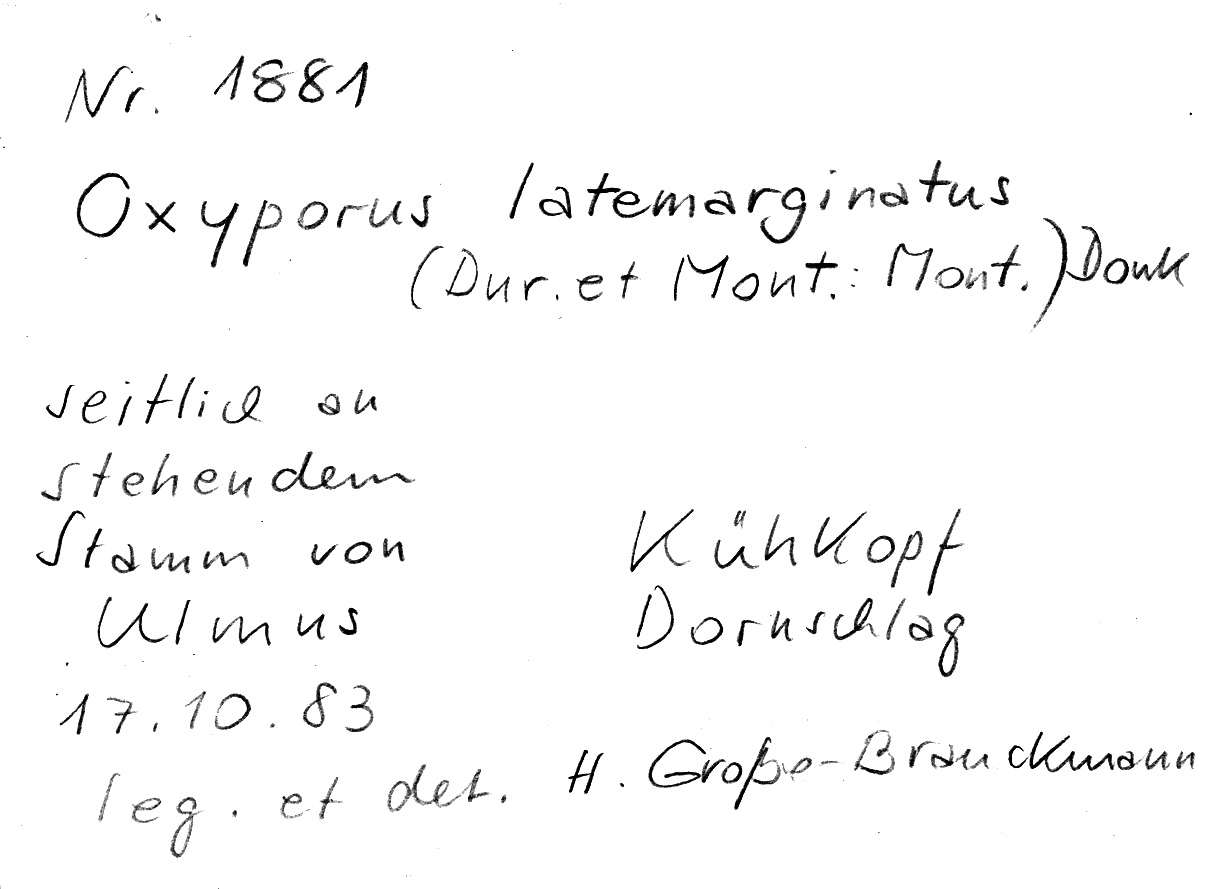 Nr. 1881
Oxyporus latemarginatus
(Dur. et Mont.: Mont.) Donk
seitlich an
stehendem
Stamm von
Ulmus
Kühkopf
Dornschlag
17.10.83
leg. et det. H. Große-Brauckmann